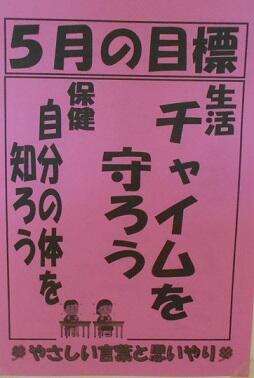 ５月の目標
生活
チャイムを
守ろう
保健
自分の体を
知ろう
やさしい言葉と思いやり